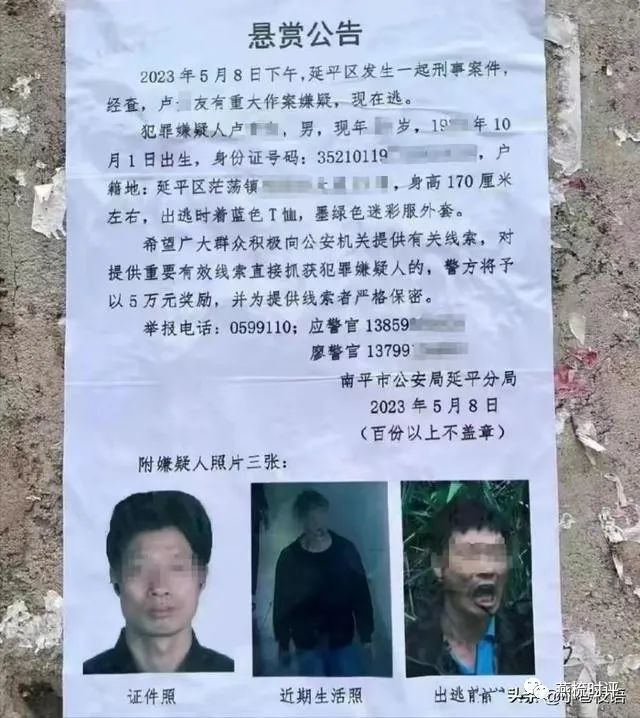 悬赏公告
2023年5月8日下午，延平区发生一起刑事案件，
经查，卢 友有重大作案嫌疑，现在逃。
犯罪嫌疑人卢 ，男，现年 岁，19 年10
月1日出生，身份证号码：35210119 ，户
籍地：延平区茫荡镇 ，身高170厘米
左右，出逃时着蓝色T恤，墨绿色迷彩服外套。
希望广大群众积极向公安机关提供有关线索，对
提供重要有效线索直接抓获犯罪嫌疑人的，警方将予
以5万元奖励，并为提供线索者严格保密。
举报电话：0599110；应警官13859
廖警官13799
南平市公安局延平分局
2023年5月8日
（百份以上不盖章）
附嫌疑人照片三张：
证件照
近期生活照
出逃前
燕梳时评